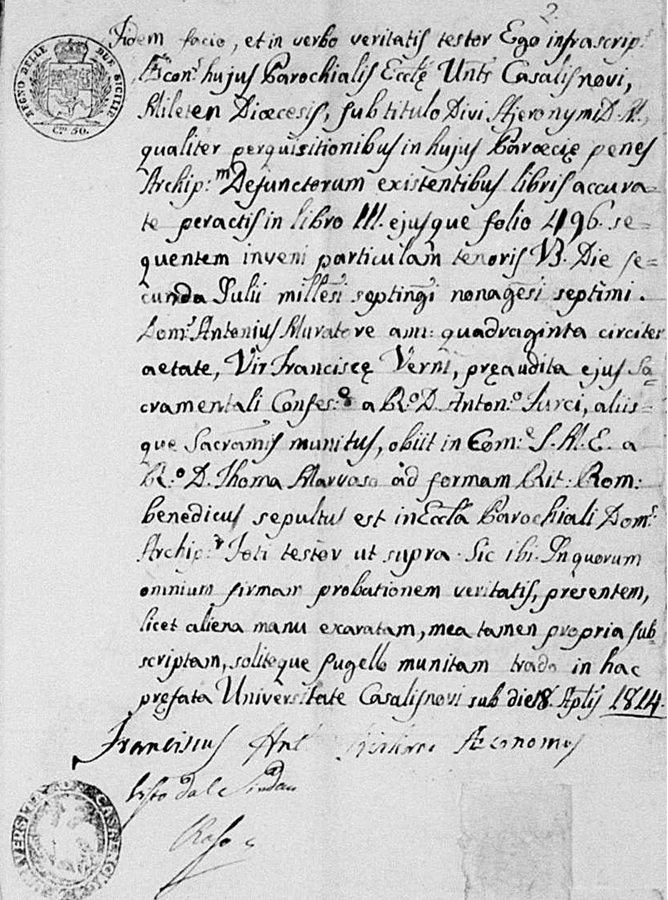 2.
REGNO DELLE DUE SICILIE
Gr. 50.
Fidem facio, et in verbo veritatis testor Ego infrascrip:
Æcon: hujus Parochialis Ecclę Unts Casalisnovi,
Mileten Diœcesis, sub titulo Divi Hjeronymi D. M.,
qualiter perquisitionibus in hujus Parœcię penes
Archip:m Defunctorum existentibus libris accura=
te peractis in libro III. ejusque folio 496. se=
quentem inveni particulam tenoris V3. Die se=
cunda Julii millesi septingi nonagesi septimi.
Doms Antonius Muratore ann: quadraginta circiter
aetate, Vir Franciscę Verni, pręaudita ejus Sa=
cramentali Confes:e a R:o D. Anton:o Furci, aliis=
que Sacramis munitus, obiit in Com:e S. M. E. a
R:o D. Thoma Marvaso ad formam Rit: Rom:
benedicus sepultus est in Eccla Parochiali Doms
Archip:r Joti testor ut supra. Sic ibi. In quorum
omnium firmam probationem veritatis, presentem,
licet aliena manu exaratam, mea tamen propria sub=
scriptam, soliteque sugello munitam trado in hac
pręfata Universitate Casalisnovi sub die 18. Aplis 1814.
Franciscus Ant Æconomus
Visto dal Sindaco
Raso